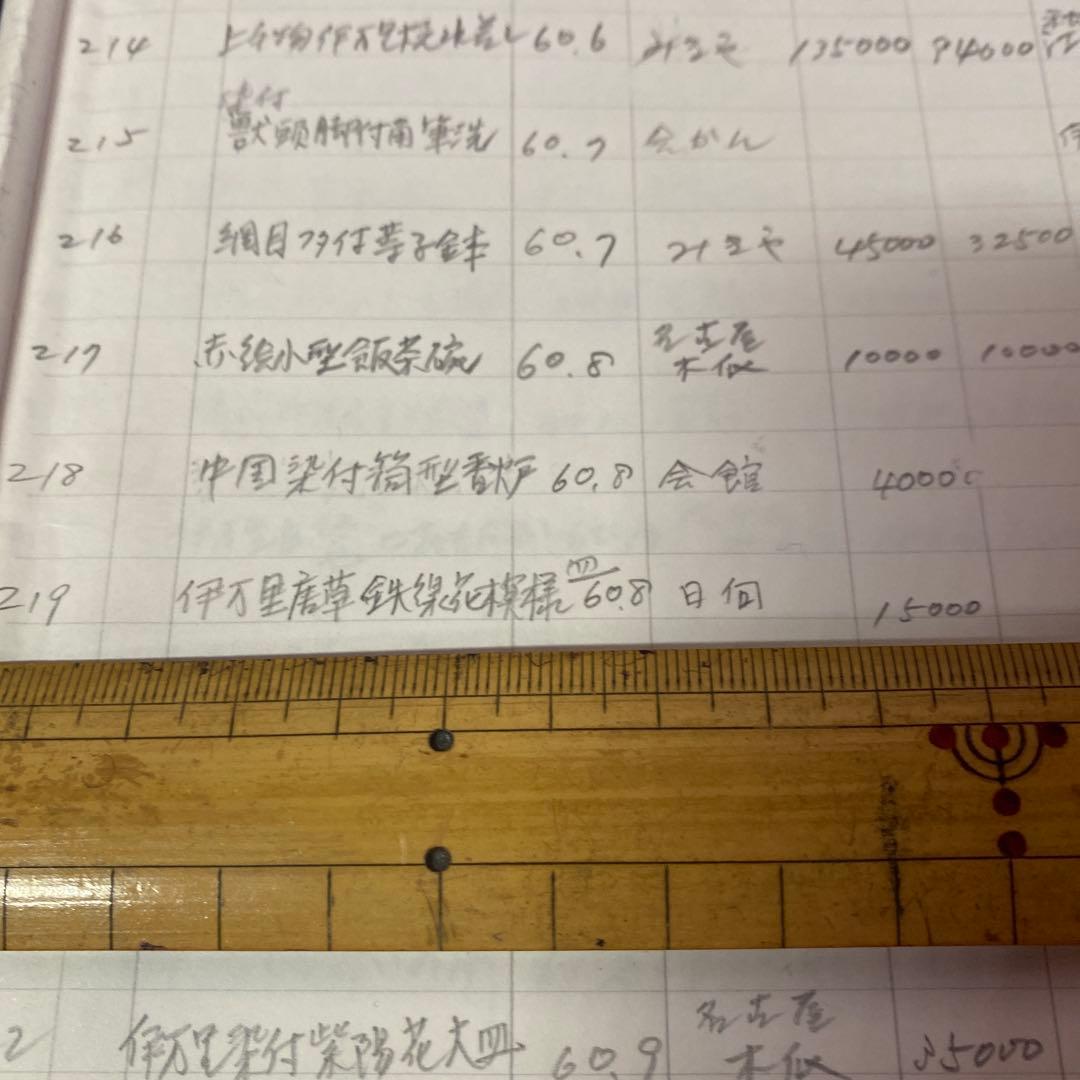 214 60.6 135000 94000
215 獣頭脚付角筆洗 60.7 会かん
216 網目 付菓子鉢 60.7 45000 32500
217 赤絵小型飯茶碗 60.8 名古屋 10000 10000
218 中国染付筒型香炉 60.8 会館 40000
219 伊万里唐草鉄線花模様皿 60.8 日向 15000
2 伊万里染付紫陽花大皿 60.9 名古屋 35000